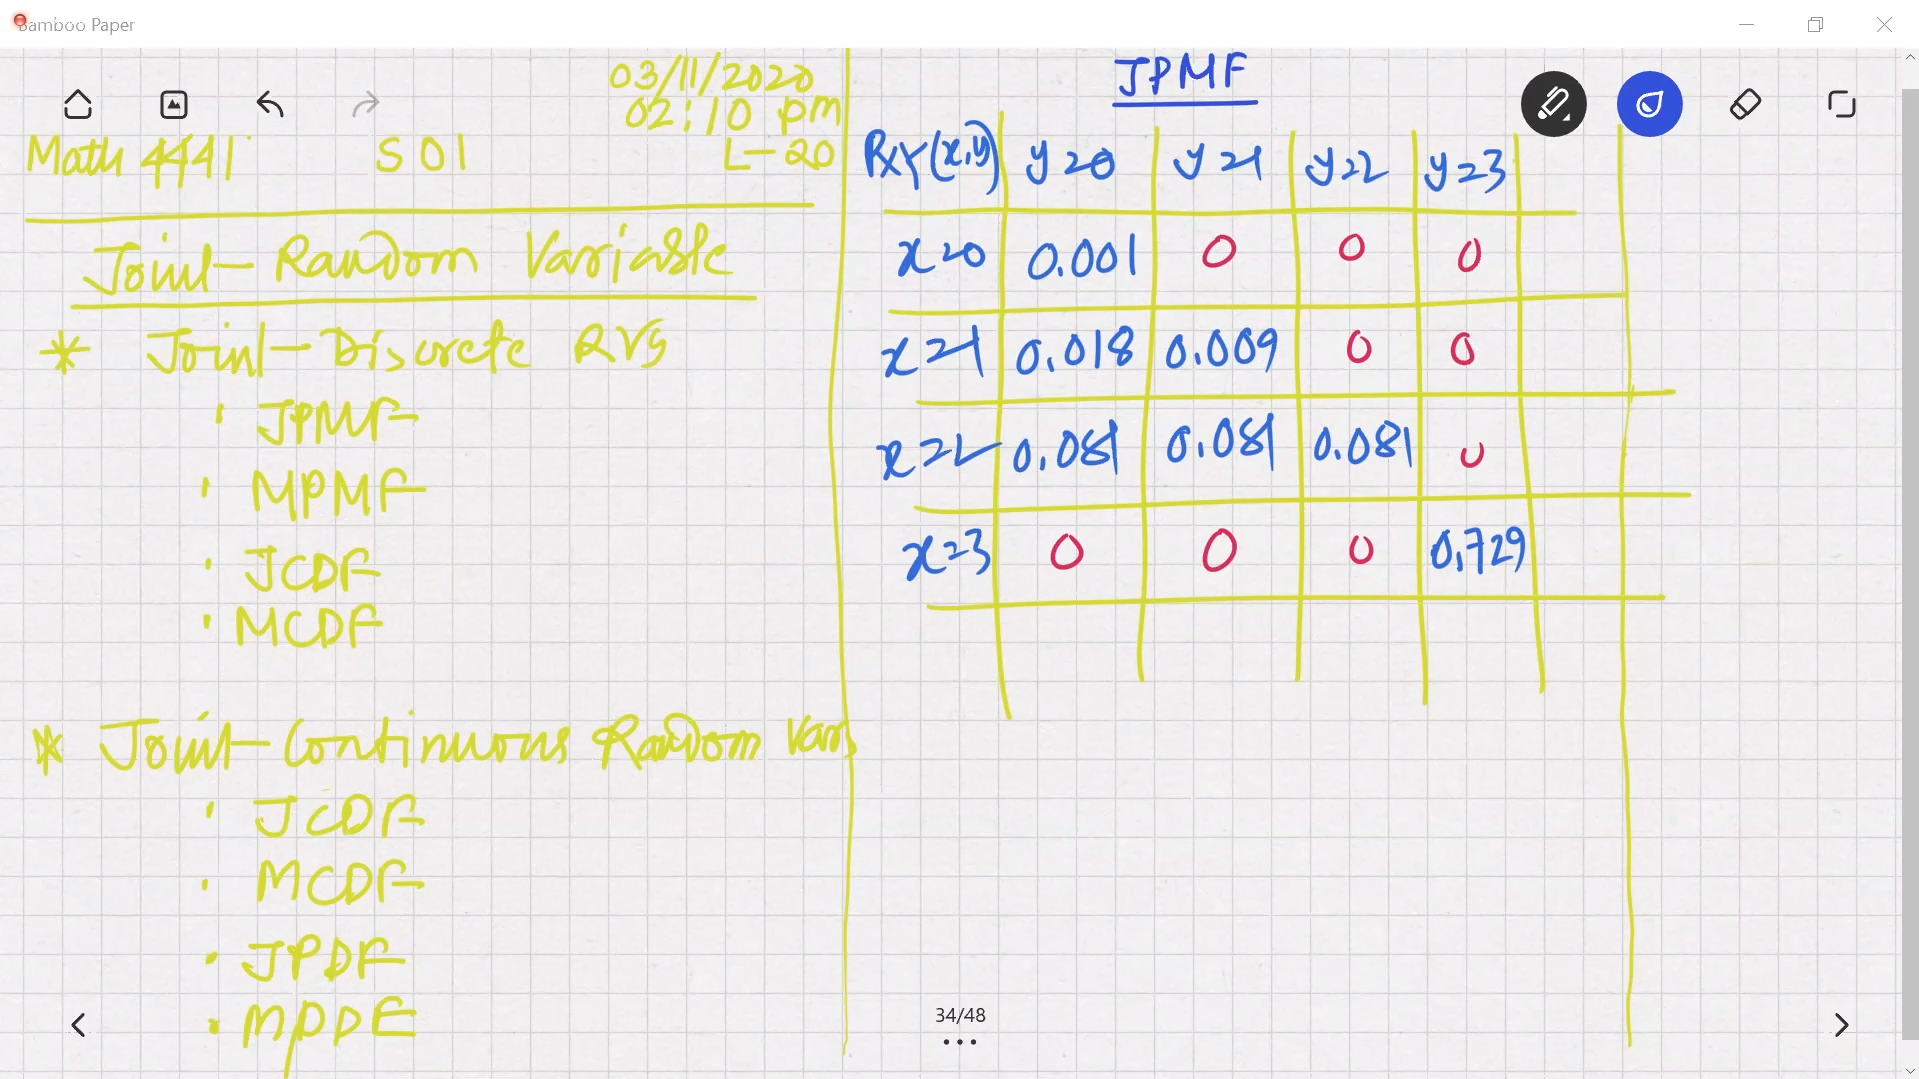 Bamboo Paper
03/11/2020
02:10 pm
Math 4441 S01 L-20
Joint-Random Variable
* Joint-Discrete RVs
· JPMF
· MPMF
· JCDF
· MCDF
* Joint-Continuous Random Vars
· JCDF
· MCDF
· JPDF
· MPDF
JPMF
PXY(x,y) y=0 y=1 y=2 y=3
x=0 0.001 0 0 0
x=1 0.018 0.009 0 0
x=2 0.081 0.081 0.081 0
x=3 0 0 0 0.729
34/48